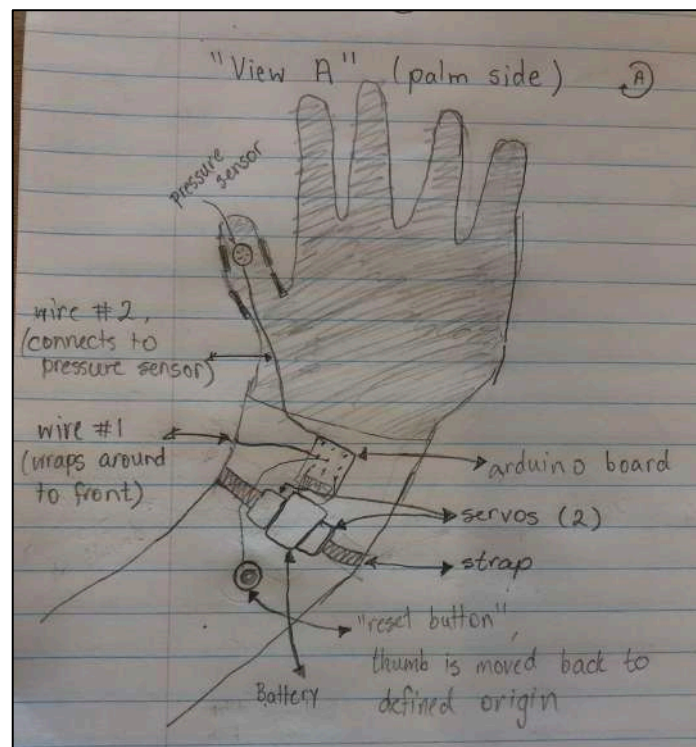 "View A" (palm side)
A
pressure
sensor
wire #2,
(connects to
pressure sensor)
wire #1
(wraps around
to front)
arduino board
servos (2)
strap
"reset button",
thumb is moved back to
defined origin
Battery